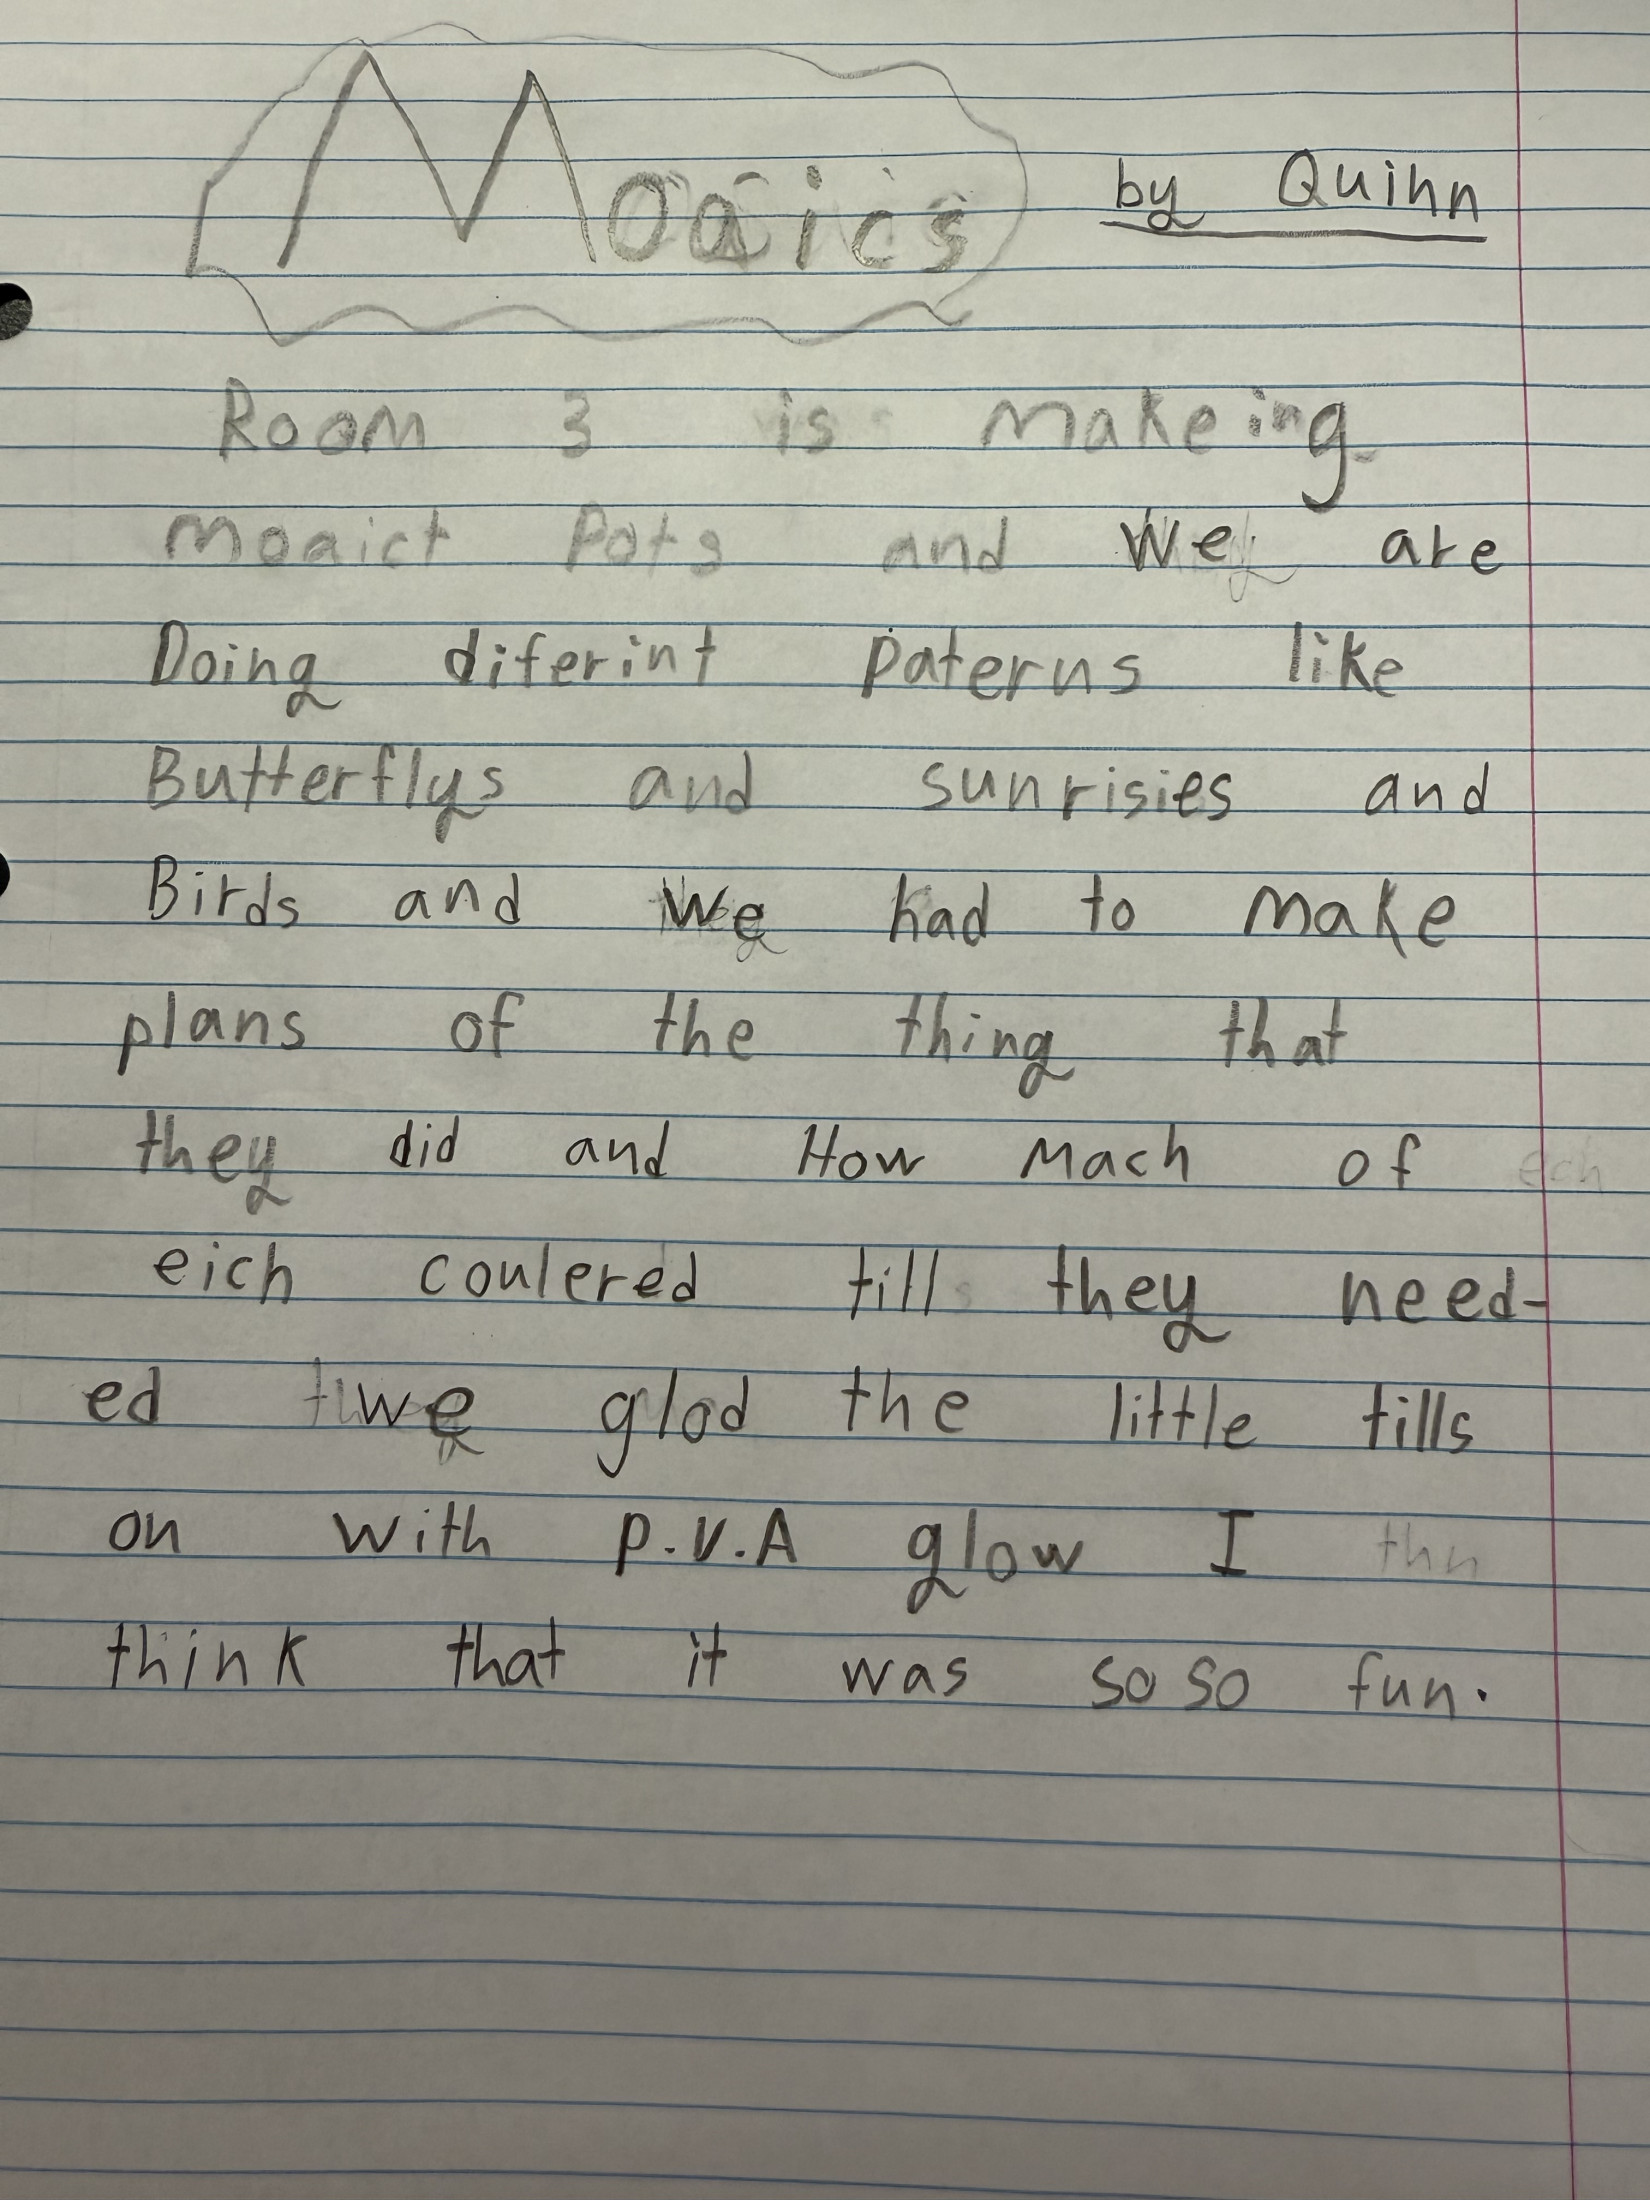 Moaics by Quinn
Room 3 is makeing
moaict Pots and we are
Doing diferint Paterns like
Butterflys and sunrisies and
Birds and we had to make
plans of the thing that
they did and How mach of
eich coulered till they need-
ed we glod the little tills
on with P.V.A glow I
think that it was so so fun.